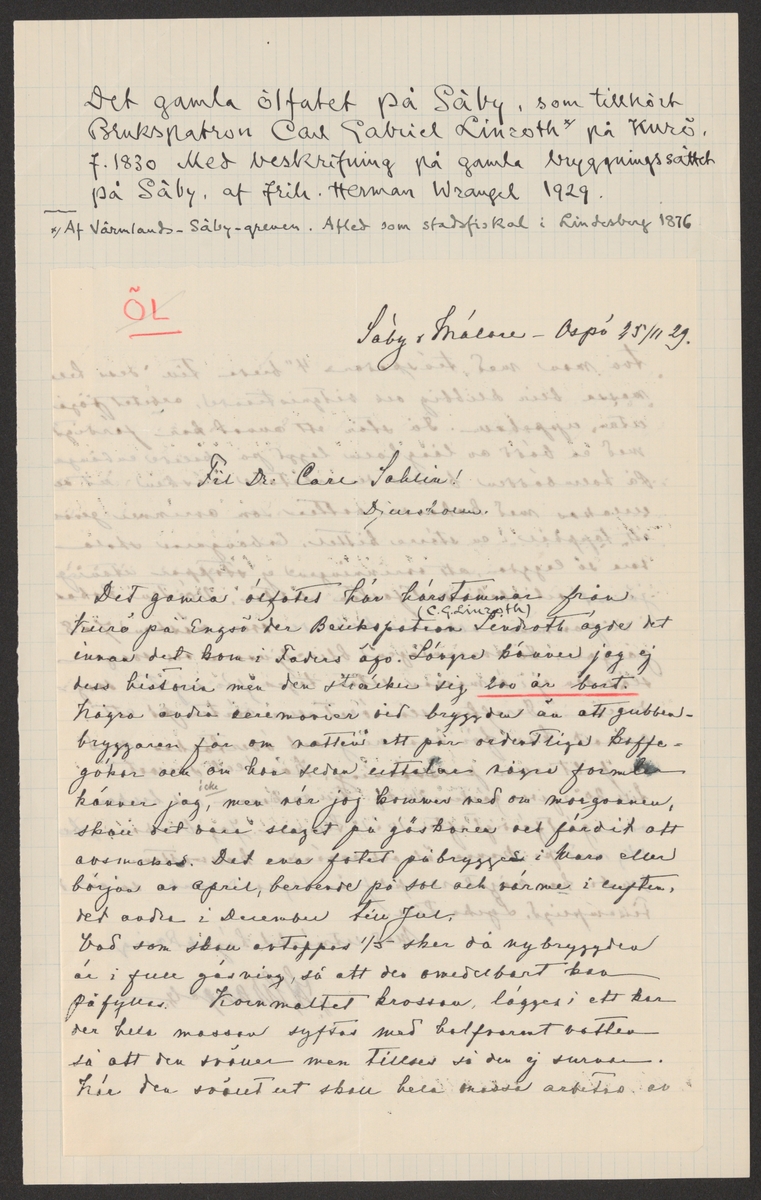 Det gamla ölfatet på Säby, som tillhört
Brukspatron Carl Gabriel Linroth* på Kurö.
f. 1830 Med beskrifning på gamla bryggningssättet
på Säby, af Frih. Herman Wrangel 1929.
*/ Af Värmlands-Säby-grenen. Afled som stadsfiskal i Lindesberg 1876
ÖL
Säby i Mälare - Ospö 25/11 29.
Fil Dr. Carl Sahlin!
Djursholm.
Det gamla ölfatet här härstammar från
(C.G. Linroth)
Kurö på Engsö der Brukspatron Lindroth ägde det
innan det kom i Faders ägo. Längre känner jag ej
dess historia men den sträcker sig 100 år bort.
Några andra ceremonier vid brygden än att gubben-
bryggaren får om natten ett par ordentliga kaffe-
gökar och om han sedan uttalar några formler
känner jag icke, men när jag kommer ned om morgonen,
skall det vara slaget på gåskaren och färdigt att
avsmakas. Det ena fatet påbrygges i Mars eller
början av April, beroende på sol och värme i luften,
det andra i December till Jul.
Vad som skall avtappas 1/5 sker då nybrygden
är i full gäsning, så att den omedelbart kan
påfyllas. Kornmaltet krossas, lägges i ett kar
der hela massan syftas med halfvarmt vatten
så att den sväller men tillses så den ej surnar.
När den svällt ut skall hela massa arbetas av